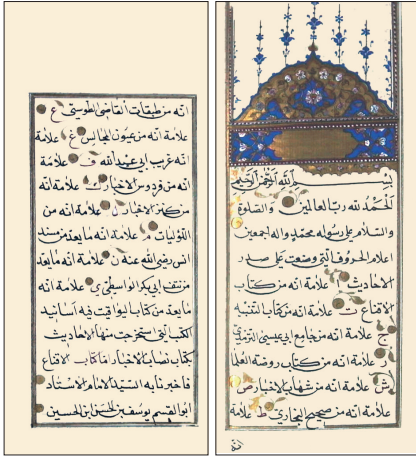 بسم الله الرحمن الرحيم
الحمد لله رب العالمين والصلوة
والسلام على رسوله محمد واله اجمعين
اعلام الحروف التي وضعت على صدر
الاحاديث علامة انه من كتاب
الاقناع ت علامة انه من كتاب التنبيه
ج علامة انه من جامع ابي عيسى الترمذي
ر علامة انه من كتاب روضة العلما
ش علامة انه من شهاب الاخبار ص
علامة انه من صحيح البخاري ط علامة
انه
انه من طبقات القاضي الطوسي ع
علامة انه من عيون المجالس غ علامة
انه غريب ابي عبيد الله ف علامة
انه من فردوس الاخبار ك علامة انه
من كنز الاخبار ل علامة انه من
اللؤليات م علامة انه ما يعد من مسند
انس رضي الله عنه ن علامة انه ما يعد
من نتف ابي بكر الواسطي ي علامة انه
ما يعد من كتاب اليواقيت فيه اسانيد
الكتب التي استخرجت منها الاحاديث
كتاب نصاب الاخبار اما كتاب الاقناع
فاخبرنا به السيد الامام الاستاد
ابو القسم يوسف بن الحسن ابن الحسين